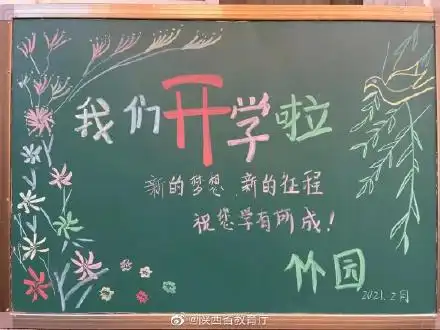 我们开学啦
新的梦想 新的征程
祝您学有所成！
竹园
2021.2月
@陕西省教育厅